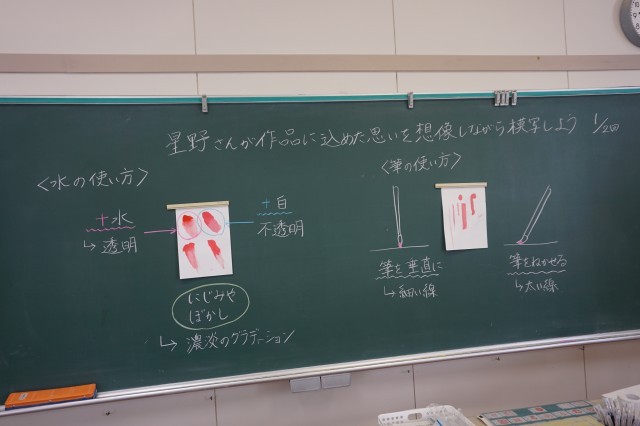 星野さんが作品に込めた思いを想像しながら模写しよう 1/2回
〈水の使い方〉
+水
↳透明
+白
不透明
にじみや
ぼかし
↳濃淡のグラデーション
〈筆の使い方〉
筆を垂直に
↳細い線
筆をねかせる
↳太い線